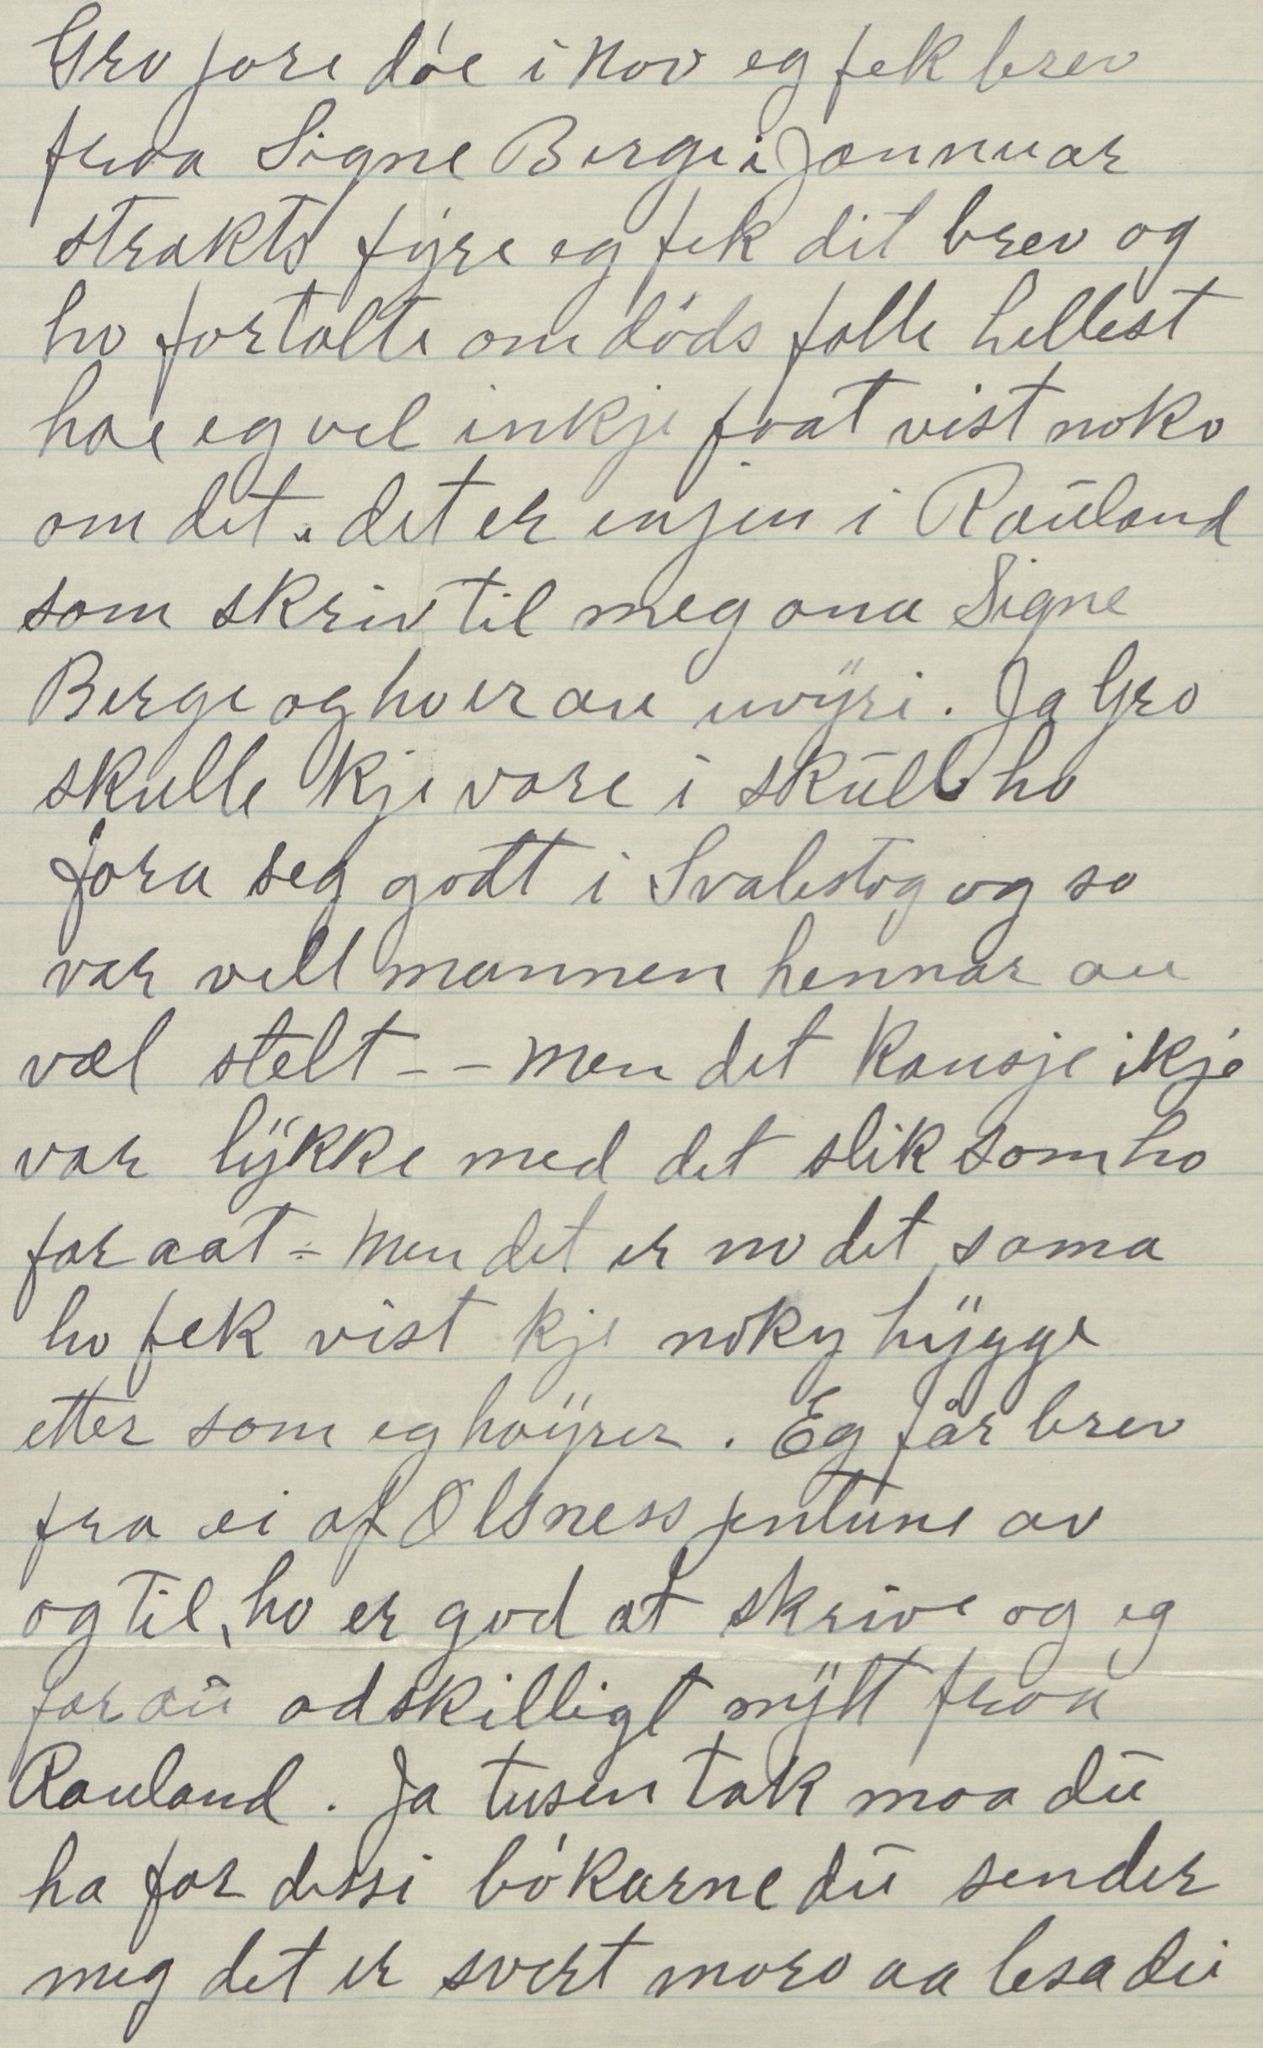 Gro jore døe i Nov eg fek brev
fraa Signe Berge i Jannuar
strakts fyre eg fek dit brev og
ho fortalte om døds falle hellest
hae eg vel inkje faat vist noko
om det. det er injen i Rauland
som skriv til meg ona Signe
Berge og ho er au uvyri. Ja Gro
skulle kje vare i skull ho
jora seg godt i Svalestog og so
var vell mannen hennar au
vel stelt - - men det kansje ikje
var lykke med det slik som ho
for aat - men det er no det sama
ho fek vist kje noky hygge
etter som eg høyrer. Eg får brev
fra ei af Olsness jentune av
og til, ho er god at skrive og eg
far au adskilligt nytt fraa
Rauland. Ja tusen tak maa du
ha for dessi bøkarne du sender
meg det er svert moro aa lesa du